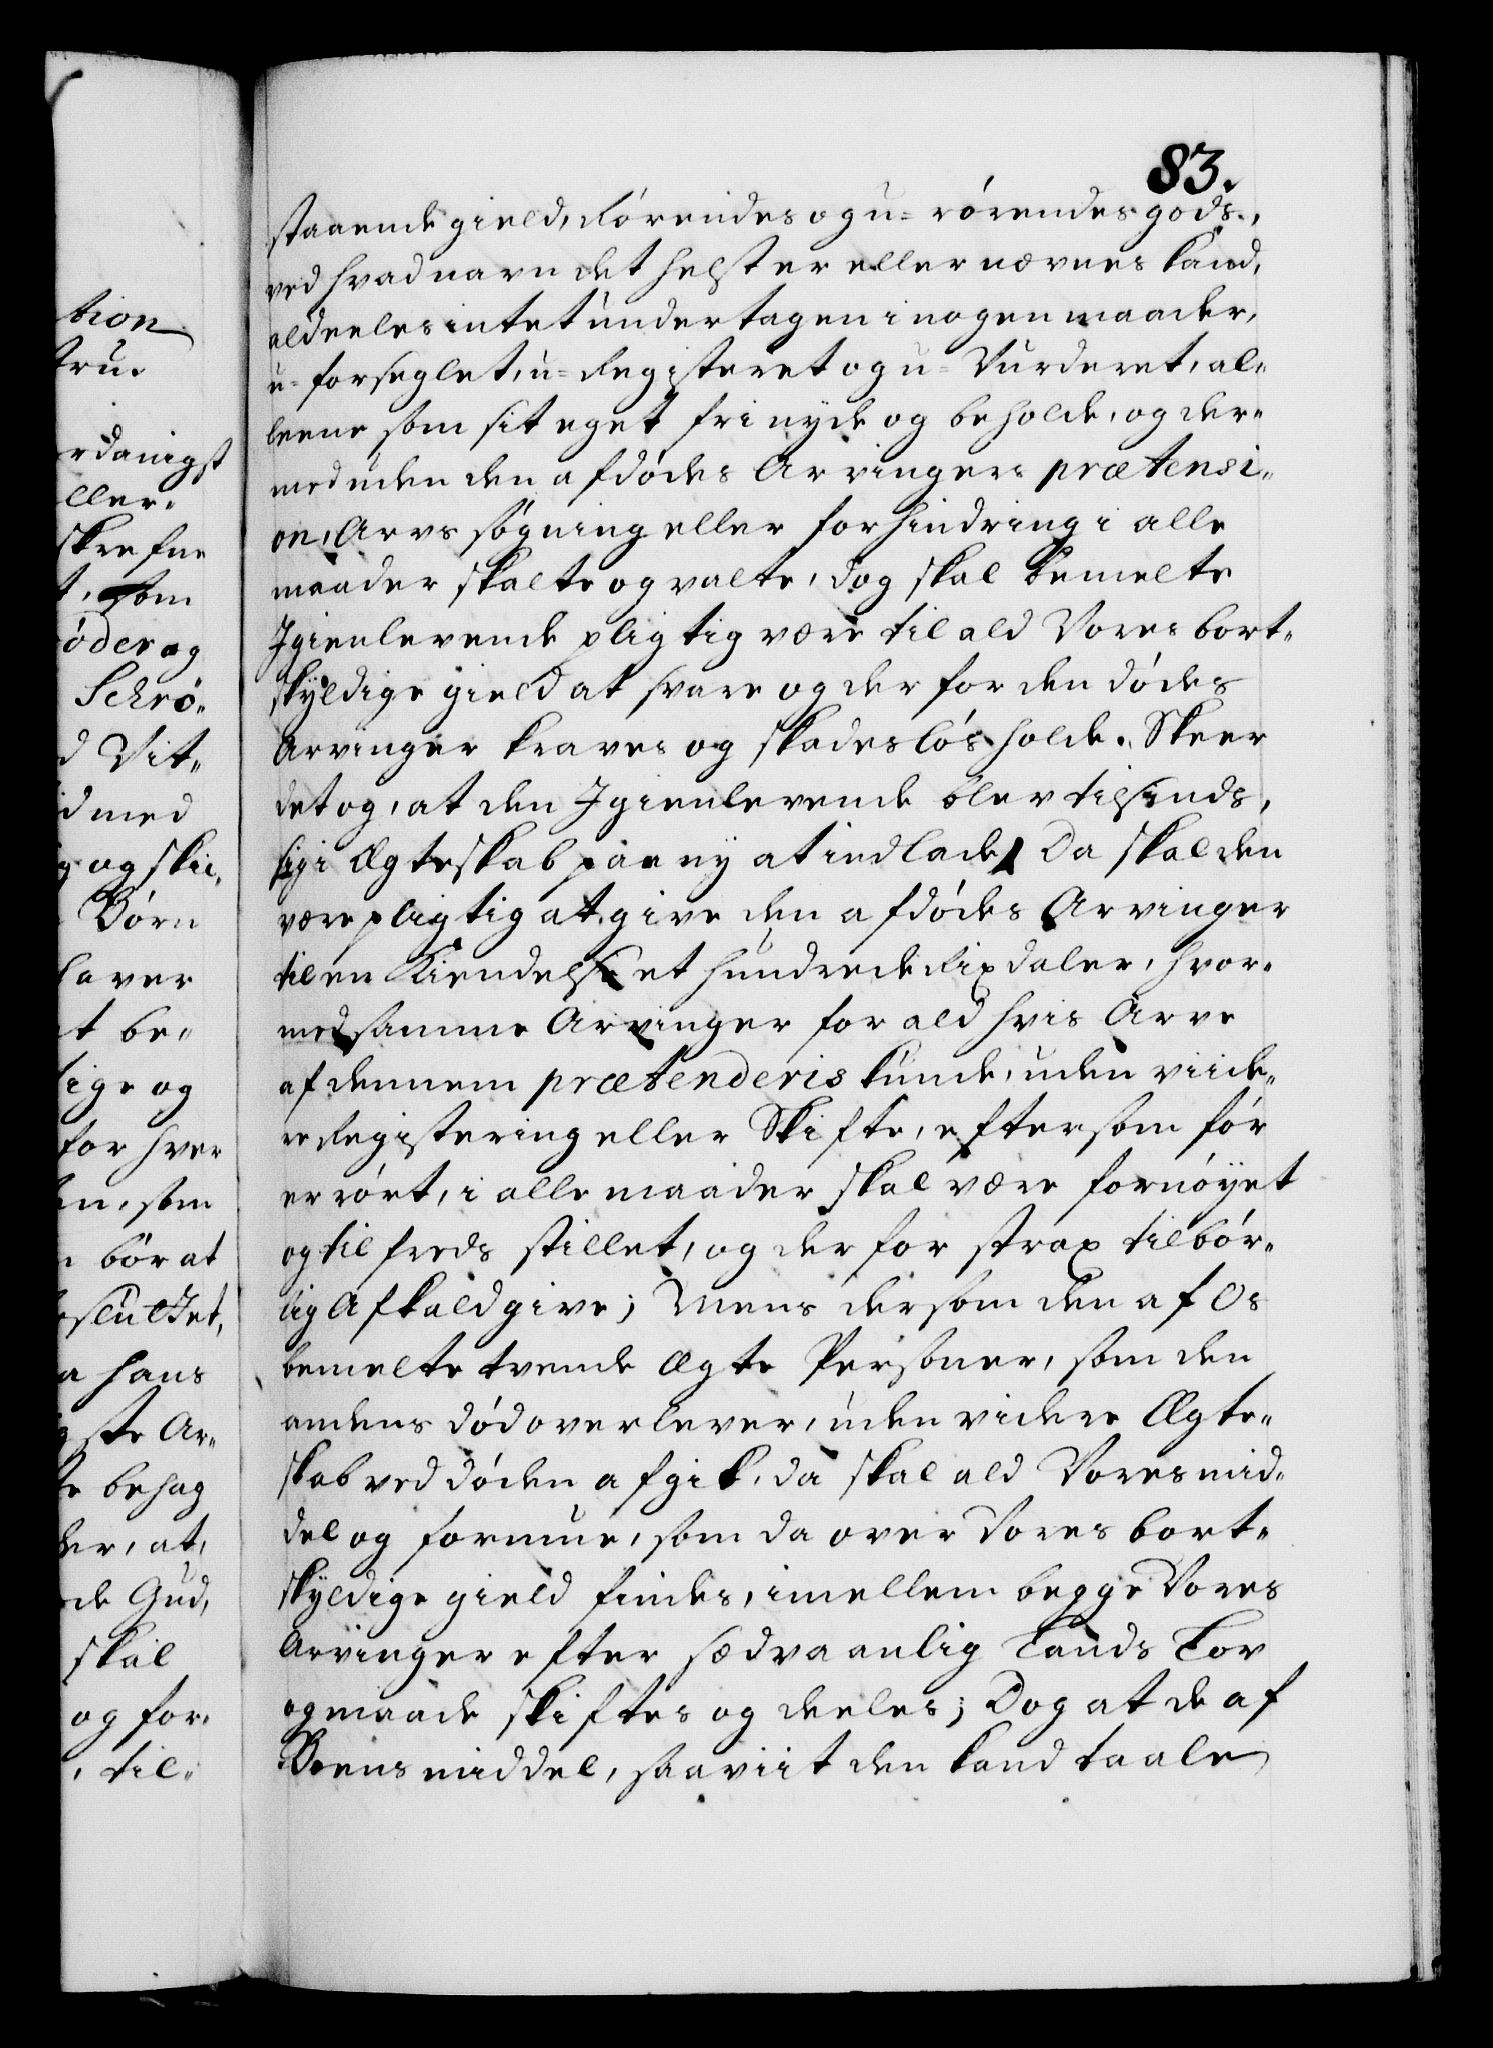 83.
staaende gield, Rørendes og u= rørendes gods,
ved hvad navn det helst er eller nævnes kand,
aldeeles intet undertagen i nogen maader,
u= forseglet, u= Registeret og u= Vurderet, al-
leene som sit eget fri nyde og beholde, og der-
med uden den afdødes Arvingers prætensi-
on, Arvs søgning eller forhindring i alle
maader skalte og valte, dog skal bemelte
Igienlevende pligtig være til ald Vores bort-
skyldige gield at svare og der for den dødes
Arvinger kraves og skadesløs holde. Skeer
det og, at den Igienlevende blev tilsinds,
sig i Ægteskab paa ny at indlade, Da skal den
være pligtig at give den afdødes Arvinger
til en Kiendelse et hundrede Rixdaler, hvor-
med samme Arvinger for ald hvis Arve
af dennem prætenderis kunde, uden viide-
re Registering eller Skifte, eftersom før
er rørt, i alle maader skal være fornøyet
og til freds stillet, og der for strax tilbør-
lig Afkald give; Mens dersom den af Os
bemelte tvende Ægte Personer, som den
andens død overlever, uden videre Ægte-
skab ved døden afgik, da skal ald Vores mid-
del og formue, som da over Vores bort-
skyldige gield findes, imellem begge Vores
Arvinger efter sædvaanlig Lands Lov
og maade skiftes og deeles; Dog at de af
Boens middel, saaviit den kand taale
tion
tru.
rdanigst
ller-
skrefne
t, som
öder og
Schrö-
d Vit-
d med
g og skii,
Børn
laver
t be-
lige og
for hver
n, som
bør at
sluttet,
a hans
ste Ar-
behag
er, at,
de Gud,
skal
og for-
, til-